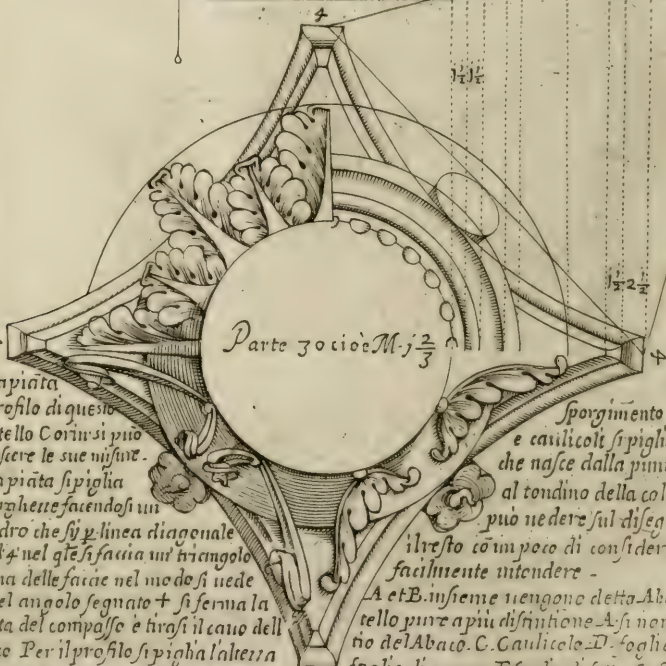 4
1½ 1½
1½ 2½
Parte 30 cioè M. j ⅔
4
piāta
rofilo di questo
tello Corin si può
scere le sue misure.
piāta si piglia
rghezze facendosi un
dro che sÿ p linea diagonale
4 nel q̄le si faccia un triangolo
na delle faccie nel modo si uede
el angolo segnato + si ferma la
ta del compasso e tirasi il cauo dell
co Per il profilo si piglia l'altezza
sporgimento
e caulicoli si pigli
che nasce dalla pun
al tondino della col
può uedere sul diseg
il resto cō un poco di consider
facilmente intendere -
A et B. insieme uengono detto Ab
tello pure a più distintione A. si nom
tio del Abaco. C. Caulicolo. D. fogli